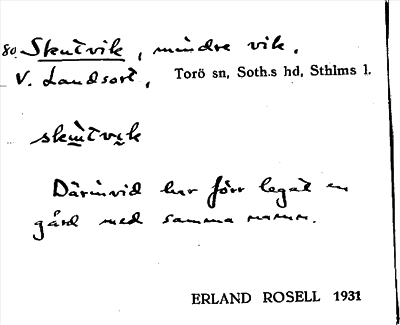 80. Skutvik, mindre vik.
V. Landsort, Torö sn, Soth.s hd, Sthlms l.
skùtvik
Därinvid har förr legat en
gård med samma namn.
ERLAND ROSELL 1931